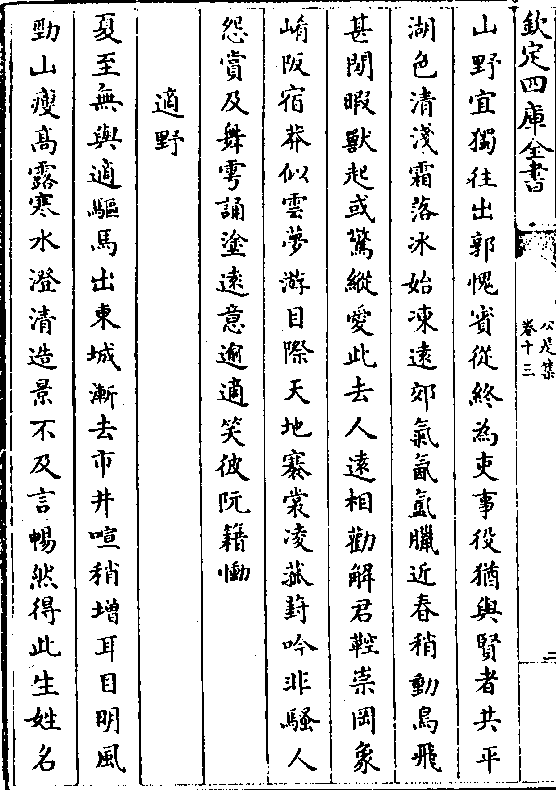 欽定四庫全書
公是集
卷十三
二
山野宜獨往出郭愧賓從終為吏事役猶與賢者共平
湖色清淺霜落冰始凍遠郊氣氤氲臘近春稍動鳥飛
甚閒暇獸起或驚縱愛此去人遠相勸解君鞚崇岡象
崤阪宿莽似雲夢游目際天地褰裳凌菰葑吟非騷人
怨賞及舞雩誦塗遠意逾適笑彼阮籍慟
適野
夏至無與適驅馬出東城漸去市井喧稍增耳目明風
勁山瘦高露寒水澄清造景不及言暢然得此生姓名